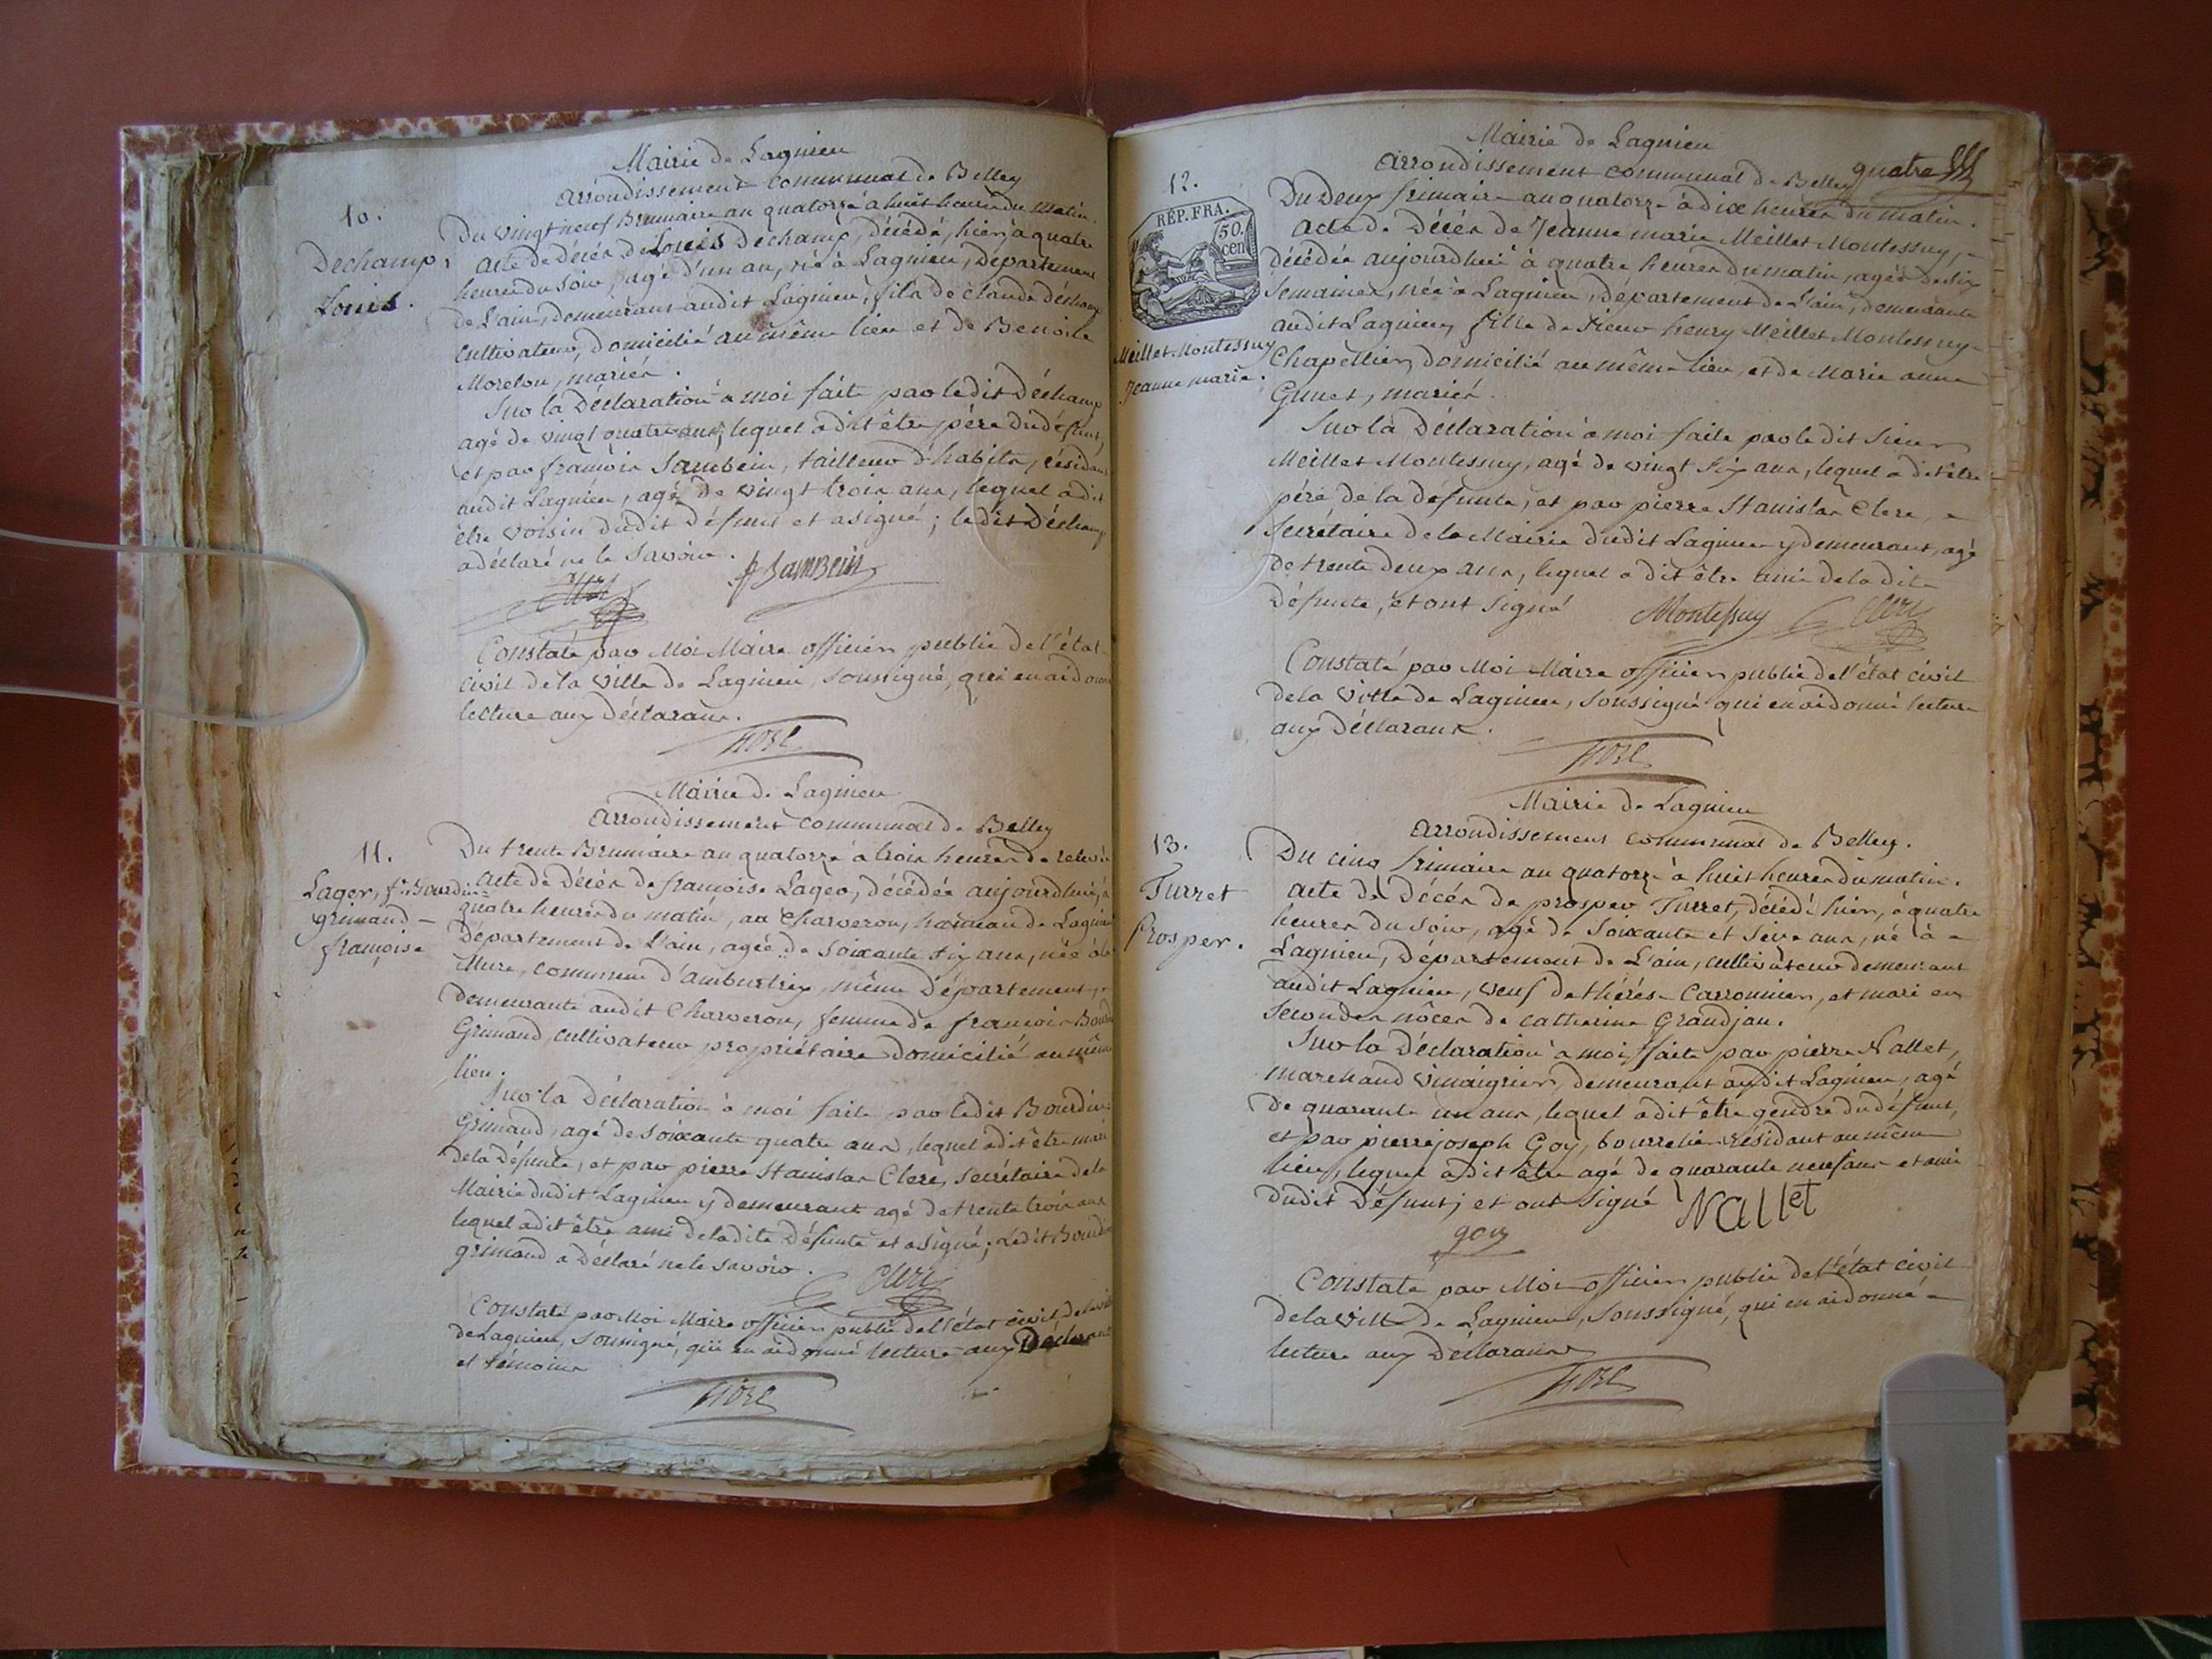 Mairie de Lagnieu
arrondissement communal de Belley
10.
Dechamp,
Louis.
Du vingt neuf Brumaire an quatorze à huit heures du matin.
acte de décès de Louis Dechamp, décédé, hier, à quatre
heures du soir, agé d'un an, né à Lagnieu, département
de l'ain, demeurant audit Lagnieu, fils de Claude Déchamp
cultivateur, domicilié au même lieu et de Benoite
Morelou, mariés.
Sur la Déclaration à moi faite par ledit Déchamp
agé de vingt quatre ans, lequel a dit être père du défunt,
et par françois Sambein, tailleur d'habits, résidant
audit Lagnieu, agé de vingt trois ans, lequel a dit
être voisin dudit défunt et a signé; ledit Décham
a déclaré ne le savoir.
f Sambein
Constaté par Moi Maire officier public de l'état
civil de la ville de Lagnieu, soussigné, qui en ai donn
lecture aux déclarans.
Mairie de Lagnieu
arrondissement communal de Belley
11.
Lager, fe. Bourdin=
grimaud=
françoise
Du trente Brumaire an quatorze à trois heures de relevée
acte de décès de françoise Lager, décédée aujourdhui, à
quatre heures du matin, au Charveron, hameau de Lagnieu
Département de l'ain, agée de soixante six ans, née à la
Mure, commune d'ambutrix même Département,
demeurante audit Charveron, femme de françois Bourdin
Grimaud, cultivateur propriétaire domicilié au même
lieu.
Sur la déclaration à moi faite par ledit Bourdin=
Grimaud, agé de soixante quatre ans, lequel a dit être mari
de la défunte, et par pierre Stanislas Clerc, secrétaire de la
Mairie dudit Lagnieu y demeurant agé de trente trois ans
lequel a dit être ami de ladite défunte et a signé; ledit Bourdin
grimaud a déclaré ne le savoir.
Clerc
Constaté par Moi Maire officier public de l'état civil, de la ville
de Lagnieu, soussigné, qui en ai donné lecture aux Déclarant
et témoins
Mairie de Lagnieu
arrondissement communal de Belley
quatre
12.
RÉP. FRA.
50.
cen
Meillet Montessuy
Jeanne marie.
Du Deux frimaire an quatorze à dix heures du matin.
acte de Décès de Jeanne marie Meillet Montessuy,
décédée aujourdhui à quatre heures du matin, agée de six
semaines, née à Lagnieu, département de l'ain, demeurante
audit Lagnieu, fille de sieur henry Meillet Montessuy
Chapellier, domicilié au même lieu, et de Marie anne
mariés.
Sur la Déclaration à moi faite par ledit Sieur
Meillet Montessuy, agé de vingt six ans, lequel a dit être
père de la défunte, et par pierre Stanislas Clerc,
Secrétaire de la Mairie dudit Lagnieu y demeurant, agé
de trente deux ans, lequel a dit être ami de la dite
Défunte, et ont signé
Montessuy Clerc
Constaté par Moi Maire officier public de l'état civil
de la ville de Lagnieu, soussigné qui en ai donné lecture
aux déclarans.
Mairie de Lagnieu
arrondissement communal de Belley.
13.
Turret
Prosper.
Du cinq frimaire an quatorze à huit heures du matin.
acte de Décès de prosper Turret, décédé hier, à quatre
heures du soir, agé de soixante et seize ans, né à
Lagnieu, Département de l'ain, cultivateur demeurant
audit Lagnieu, veuf de thérèse Carronnier, et mari en
secondes nôces de catherine Grandjan.
Sur la Déclaration à moi faite par pierre Nallet,
marchand vinaigrier, demeurant audit Lagnieu, agé
de quarante un ans, lequel a dit être gendre du défunt,
et par pierre joseph Goy, bourrelier résidant au même
lieu, lequel a dit être agé de quarante neuf ans et ami
dudit Défunt; et ont signé
Nallet
goy
Constaté par Moi officier public de l'état civil
de la ville de Lagnieu, soussigné, qui en ai donné
lecture aux Déclarans